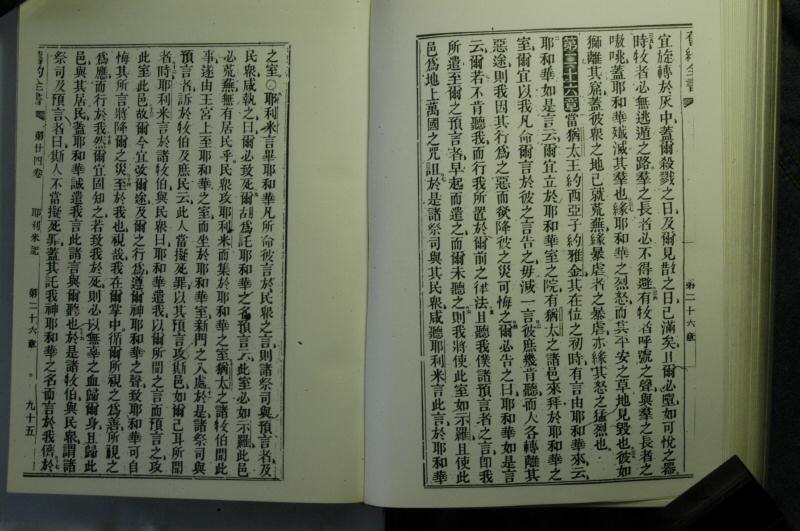 舊約全書
第二十六章
宜旋轉於灰中蓋爾殺戮之日及爾見散之日已滿矣且爾必墮如可悅之器
時牧者必無逃遁之路羣之長者必不得避有牧者呼號之聲與羣之長者之
嗷咷蓋耶和華殲滅其羣也緣耶和華之烈怒而其平安之草地見毀也彼如
獅離其窟蓋彼衆之地已就荒蕪緣暴虐者之暴虐亦緣其怒之猛烈也
第二十六章當猶太王約西亞子約雅金其在位之初時有言由耶和華來云
耶和華如是言云爾宜立於耶和華室之院有猶太之諸邑來拜於耶和華之
室爾宜以我凡命爾言於彼之之言告之毋減一言彼庶幾肯聽而人各轉離其
惡途則我因其行爲之惡而欲降彼之災可悔之爾必告之曰耶和華如是言
云爾若不肯聽我而行我所置於爾前之律法且聽我僕諸預言者之言卽我
所遣至爾之預言者早起而遣之而爾未聽之則我將使此室如示羅且使此
邑爲地上萬國之咒詛於是諸祭司與其民衆咸聽耶利米言此言於耶和華
之室○耶利米言畢耶和華凡所命彼言於民衆之言則諸祭司與預言者及
民衆咸執之曰爾必致死爾胡爲託耶和華之名預言云此室必如示羅此邑
必荒蕪無有居民乎民衆攻耶利米而集於耶和華之室猶太之諸牧伯聞此
事遂由王宮上至耶和華之室而坐於耶和華室新門之入處於是諸祭司與
預言者訴於牧伯及庶民云此人當擬死罪以其預言攻斯邑如爾己耳所聞
者時耶利米言於諸牧伯與民衆曰耶和華遣我以爾所聞之言而預言之攻
此室此邑故爾今宜改爾途及爾之行爲遵爾神耶和華之聲致耶和華可自
悔其所言將降爾之災至於我也視哉我在爾掌中循爾所視之爲善所視之
爲應而行於我然爾宜固知之若致我於死則必以無辜之血歸爾身且歸此
邑與其居民蓋耶和華誠遣我言此諸言與爾聽也於是諸牧伯與民衆謂諸
祭司及預言者曰斯人不當擬死罪蓋其託我神耶和華之名而言於我儕於
舊約全書
第廿四卷
耶利米記
第二十六章
九十五